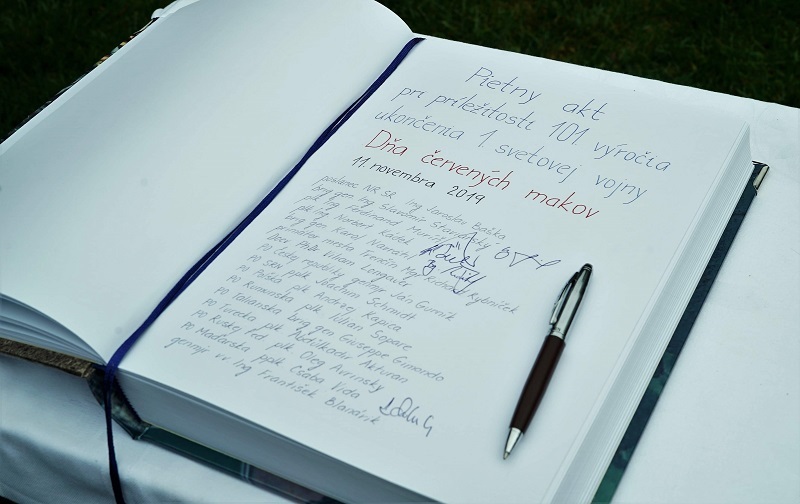 Pietny akt
pri príležitosti 101. výročia
ukončenia 1. svetovej vojny
Dňa červených makov
11. novembra 2019
poslanec NR SR Ing Jaroslav Baška
brig gen Ing Slavomír Stavarský
plk Ing Ferdinand
plk Ing Norbert Kádek
brig gen Karol Navrátil
primátor mesta Trenčín Mgr Richard Rybníček
Viliam Longauer
PO Českej republiky genpor Ján Gurník
PO SRN pplk Joachim Schmidt
PO Poľska plk Andrzej Kapica
PO Rumunska plk Sopare
PO Talianska brig gen Giuseppe Gimondo
PO Turecka plk Abdülkadir Akturan
PO Ruskej fed plk Oleg Avrinsky
PO Maďarska pplk Csaba Vida
genmjr vv Ing František Blanárik